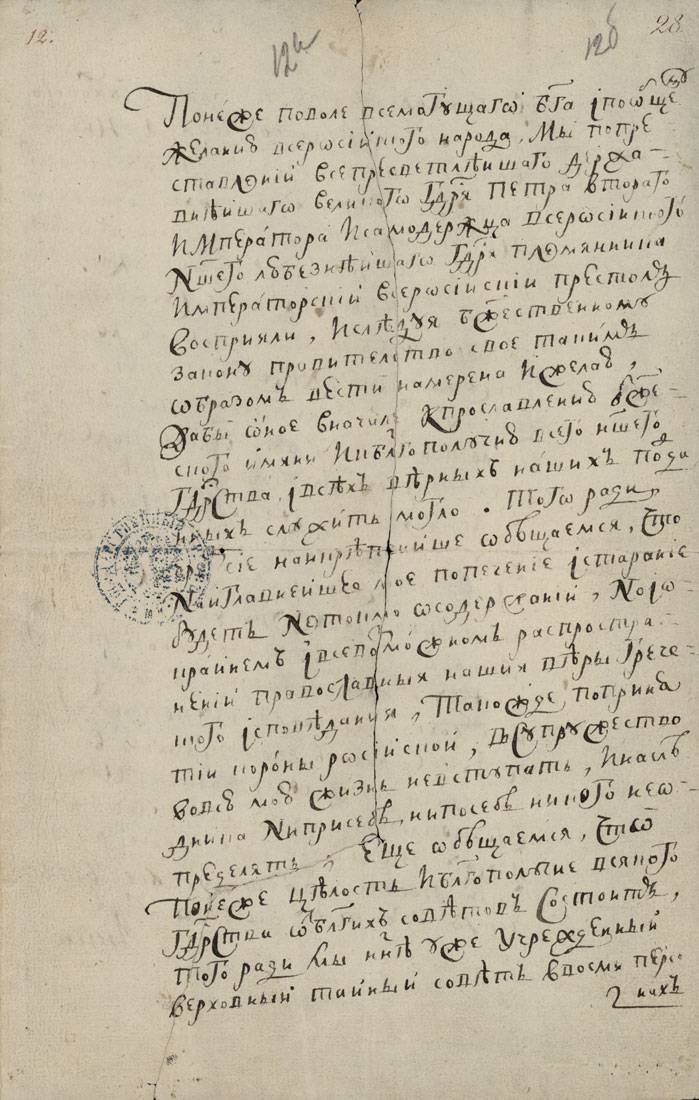 12.
12а
12б
28
Понеже поволе всемогущаго бга і пообще
му
желанию всеросійского народа, Мы попре
ставлениі всепресветлѣишаго держа-
внѣишаго великого Гдря ПЕТРА второго
ИМПЕратора и самодержца всеросійского
Ншего любезнѣишаго Гдря племянника
Императорскиі всеросійскиі престолъ
восприяли, и слѣдуя бжественному
закону правителство свое такимъ
образомъ вести намерена и желаю,
дабы оное вначале к прославлению бже-
ского имяни и к блгополучию всего ншего
Гдрства, і всѣхъ вѣрныхъ нашихъ подда
ныхъ служить могло. Того ради,
чрезъ сіе наикрѣпчаише обѣщаемся, что
Наиглавнеишее мое попечение і старание
будетъ не токмо о содержаніи, но і о
краинемъ і всевозможномъ распростра-
нениі православныя нашия вѣры Грече-
ского ісповѣдания, такожде поприня
тиі короны росіиской, в супружество
во всю мою жизнь не вступать, и наслѣ
дника ни при себѣ, ни по себѣ никого не о
пределять, Еще обѣщаемся, что
Понеже цѣлость и блгополучие всякого
Гдрства от блгихъ совѣтовъ состоитъ,
того ради Мы ннѣ уже учрежденныі
верховныі таіныі совѣтъ в восми персо
нахъ